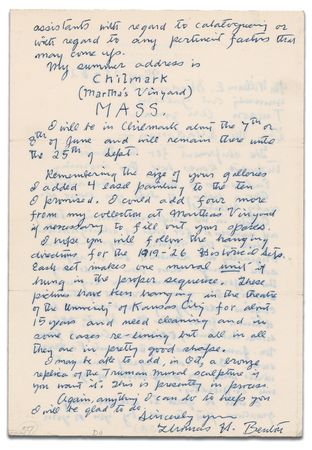 assistants with regard to cataloguing or
with regard to any pertinent factors that
may come up.
My summer address is
Chilmark
(Martha's Vinyard)
MASS.
I will be in Chilmark about the 7th or
8th of June and will remain there until
the 25th of Sept.
Remembering the size of your galleries
I added 4 easel painting to the ten
I promised. I could add four more
from my collection at Martha's Vinyard
if necessary to fill out your spaces.
I hope you will follow the hanging
directions for the 1919-26 Historical sets.
Each set makes one mural unit if
hung in the proper sequence. These
pictures have been hanging in the theatre
of the University of Kansas City for about
15 years and need cleaning and in
some cases re-lining but all in all
they are in pretty good shape.
I may be able to add, in Oct, a bronze
replica of the Truman Mural sculpture if
you want it. This is presently in process.
Again, anything I can do to help you
I will be glad to do.
Sincerely yours
Thomas H. Benton